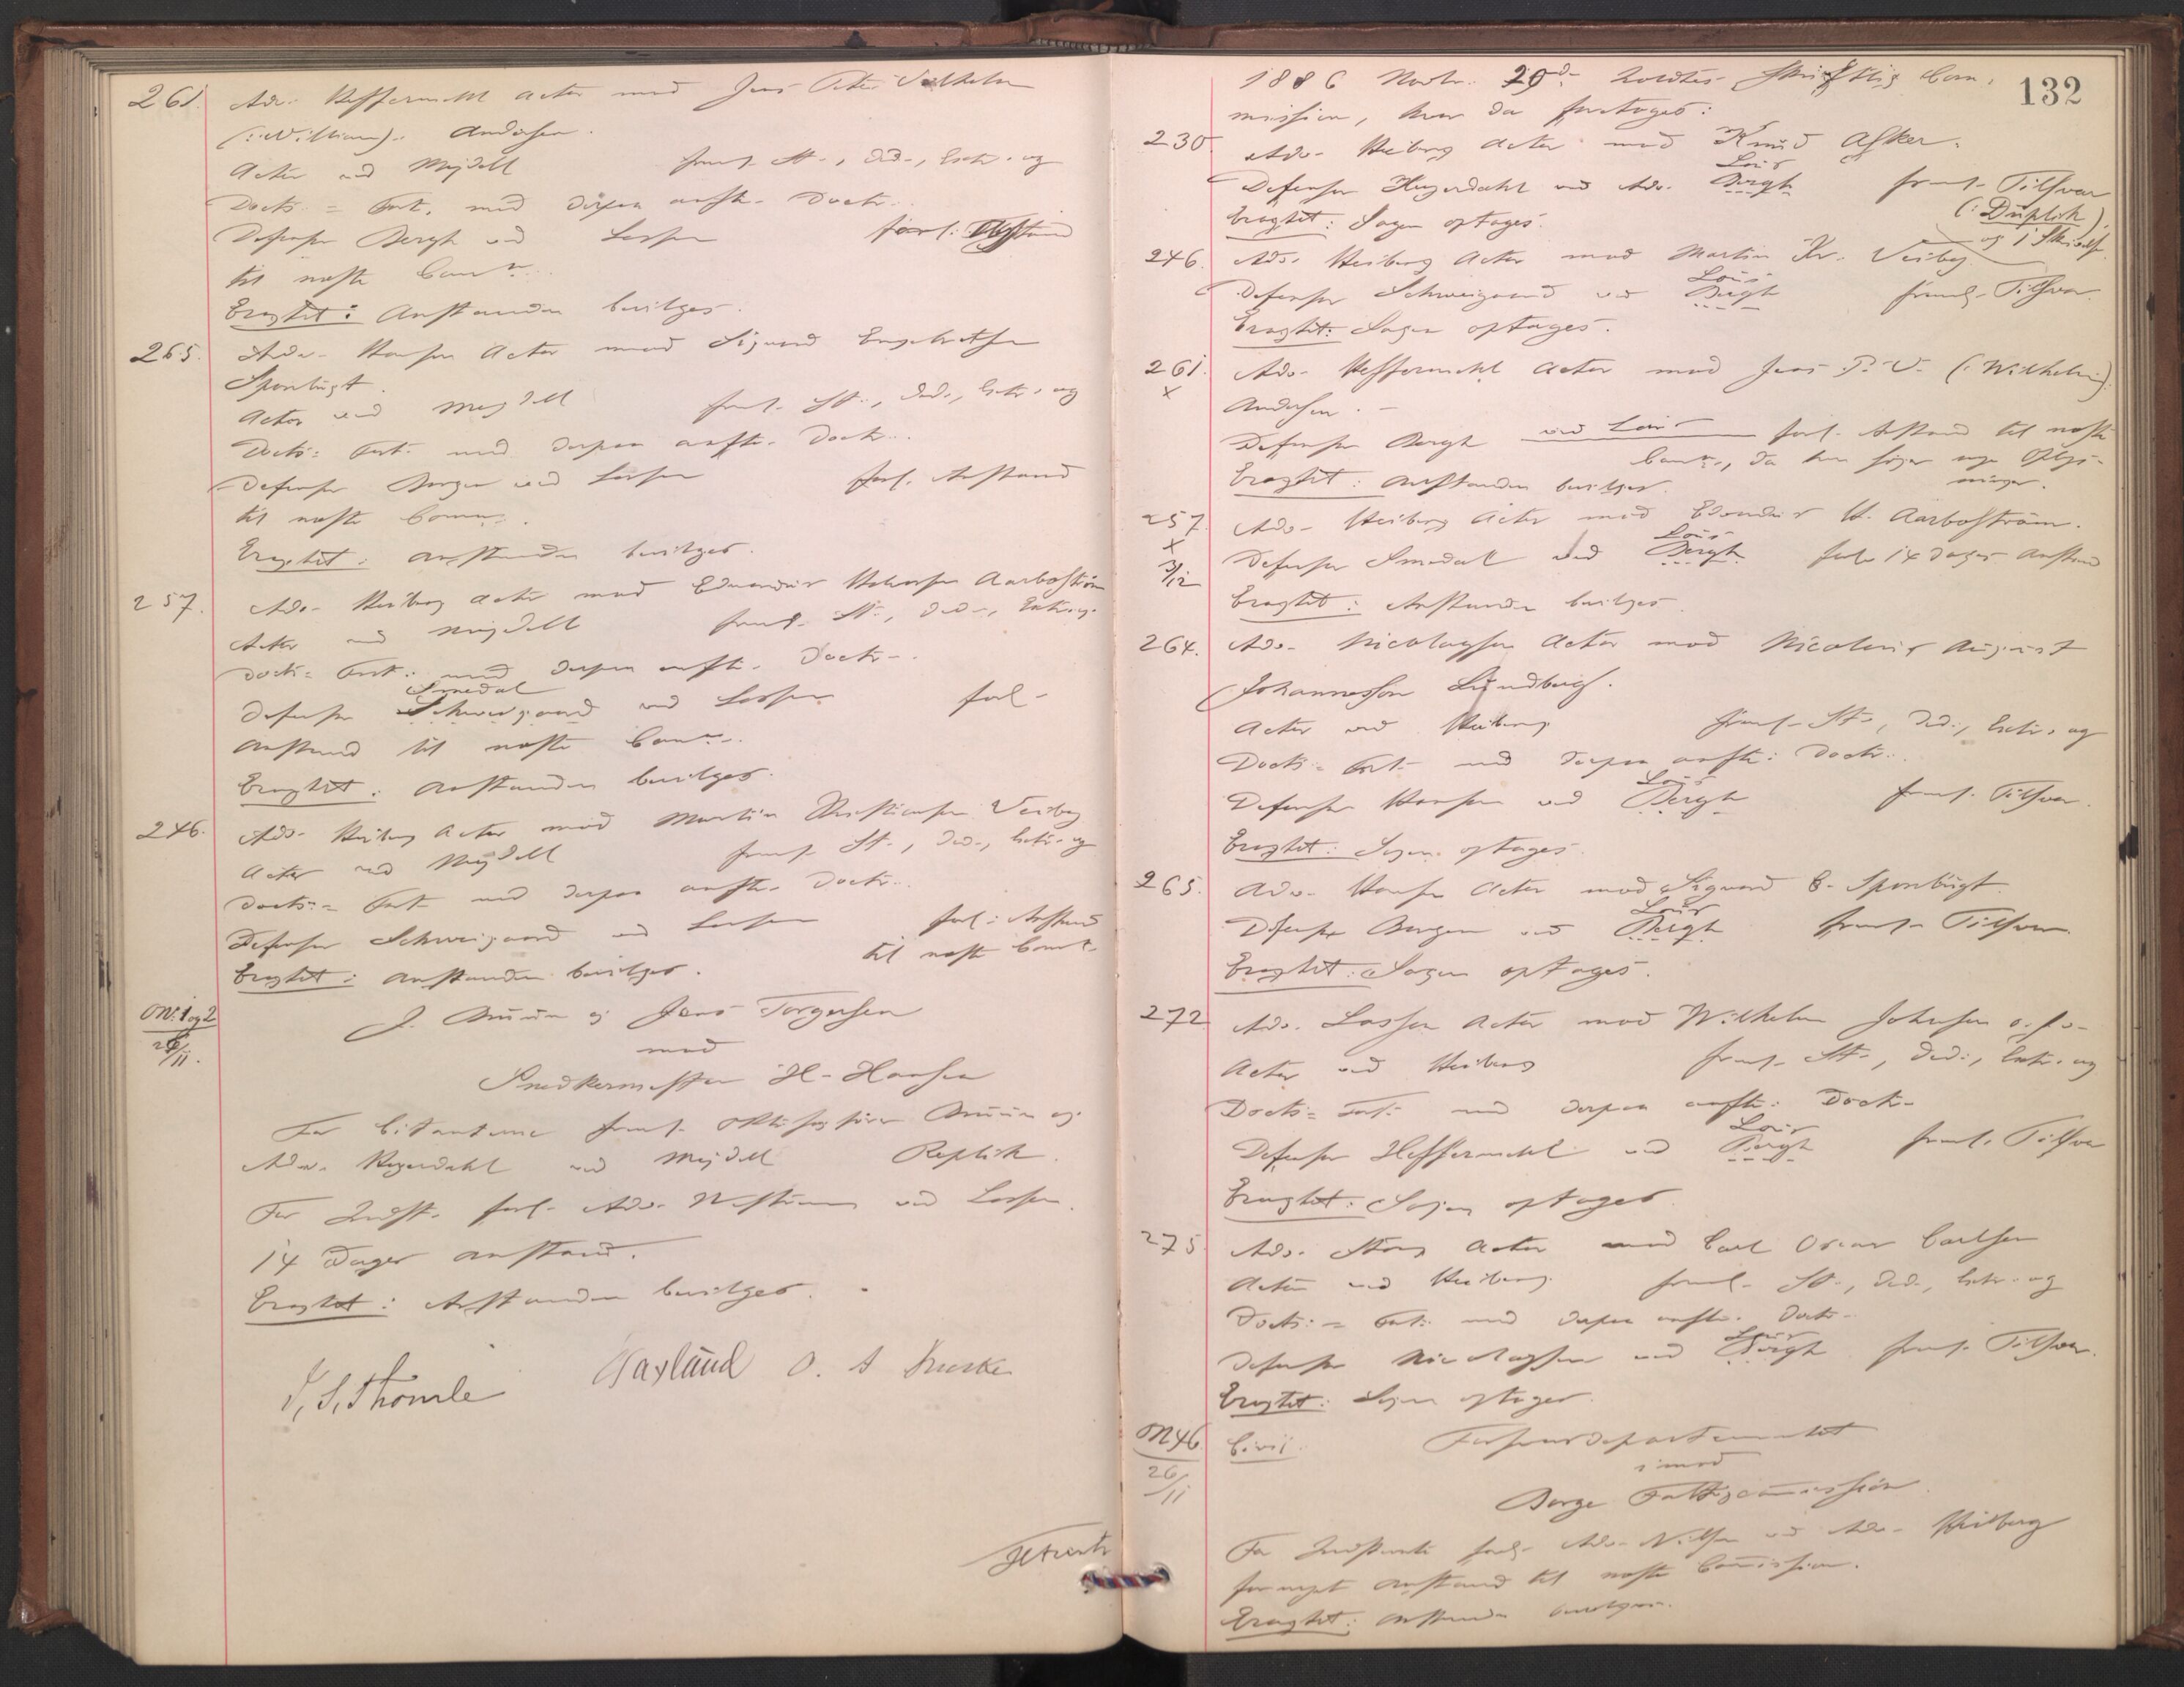 261. Adv. Heffermehl Actor mod Jens Peter Vilhelm
(: William) :. Andersen.
Actor ved Mejdell freml. St., Ded., Extr. og
Docts: = Fort. med derpaa anfte. Doctr.
Defensor Bergh ved Lassen forl: Anstand
til næste Comn.
Eragtet: Anstanden bevilges.
265. Adv. Hansen Actor mod Sigvard Engebretsen
Sponbügt.
Actor ved Mejdell freml. St., Ded., Extr. og
Docts: Fort. med derpaa anfte. Doctr.
Defensor Borgen ved Lassen forl. Anstand
til næste Comn.
Eragtet: Anstanden bevilges.
257. Adv. Heiberg Actor mod Edvardus Aarboström
Actor ved Mejdell freml. St., Ded., Extr. og
Docts = Fort. med derpaa anfte. Doctr.
Smedal
Defensor Schweigaard ved Lassen forl.
Anstand til næste Comn.
Eragtet: Anstanden bevilges.
246. Adv. Heiberg Actor mod Martin Kristiansen Veiby
Actor ved Mejdell freml. St., Ded., Extr. og
Docts: = Fort. med derpaa anfte. Doctr.
Defensor Schweigaard ved Lassen forl: Anstand
til næste Comn.
Eragtet: Anstanden bevilges.
ON: 1 og 2
26/11.
J. Bruun og Jens Torgersen
mod
Snedkermester H. Hansen
For Citanterne freml. Bruun og
Adv. Hagerdahl ved Mejdell Replik.
For Indst. forl. Adv. ved Lassen
14 Dages Anstand.
Eragtet: Anstanden bevilges.
J. S. Thomle Aasland O. A
132
1886 Novbr. 20de holdtes skriftlig Com-
mission, hvor da foretoges:
230. Adv. Heiberg Actor mod Knud Asker.
Lous
Defensor Hagerdahl ved Adv. Bergh freml. Tilsvar
(: Duplik)
Eragtet: Sagen optages.
og 1 Skrivelse
246. Adv. Heiberg Actor mod Martin Kr. Veiby
Lous
Defensor Schweigaard ved Bergh freml. Tilsvar.
Eragtet: Sagen optages.
261. Adv. Heffermehl Actor mod Jens P. V. (: Wilhelm):
x
Andersen.
Defensor Bergh ved Lous forl. Anstand til næste
Comn., da han søger nye Oplys-
ninger.
Eragtet: Anstanden bevilges.
257. Adv. Heiberg Actor mod Edvardus H. Aarboström.
x
Lous
Defensor Smedal ved Bergh forl. 14 Dages Anstand
3/12
Eragtet: Anstanden bevilges.
264. Adv. Nicolaysen Actor mod Nicolaus August
Johannesson Lundberg.
Actor ved Heiberg freml. St., Ded., Extr. og
Docts: = Fort. med derpaa anfte: Doctr.
Lous
Defensor Hansen ved Bergh freml. Tilsvar.
Eragtet: Sagen optages.
265. Adv. Hansen Actor mod Sigvard E. Sponbügt.
Lous
Defensor Borgen ved Bergh freml. Tilsvar.
Eragtet: Sagen optages.
272 Adv. Lassen Actor mod Wilhelm Johnsen o. fl.
Actor ved Heiberg freml. St., Ded., Extr. og
Docts = Fort. med derpaa anfte: Doctr.
Lous
Defensor Heffermehl ved Bergh freml. Tilsvar
Eragtet: Sagen optages.
275. Adv. Stang Actor mod Carl Oscar Carlsen
Actor ved Heiberg freml. St., Ded., Extr. og
Docts: = Fort. med derpaa anfte. Doctr.
Lous
Defensor Nicolaysen ved Bergh freml. Tilsvar.
Eragtet: Sagen optages.
ON 46. Civil. Forsvarsdepartementet
26/11
imod
Borge Fattigcommission.
For Indstevnte forl. Adv. Nilsen ved Adv. Heiberg
fornyet Anstand til næste Commission.
Eragtet: Anstanden bevilges.